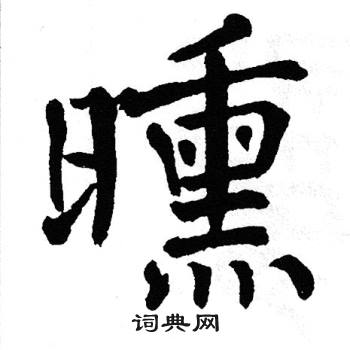 曛
词典网